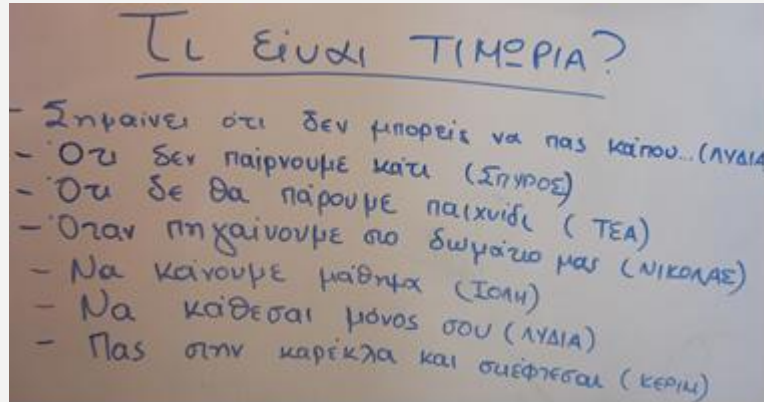 Τι είναι ΤΙΜΩΡΙΑ?
- Σημαίνει ότι δεν μπορείς να πας κάπου... (ΛΥΔΙΑ
- Ότι δεν παίρνουμε κάτι (ΣΠΥΡΟΣ)
- Ότι δε θα πάρουμε παιχνίδι (ΤΕΑ)
- Όταν πηγαίνουμε στο δωμάτιο μας (ΝΙΚΟΛΑΣ)
- Να κάνουμε μάθημα (ΙΟΛΗ)
- Να κάθεσαι μόνος σου (ΛΥΔΙΑ)
- Πας στην καρέκλα και σκέφτεσαι (ΚΕΡΙΜ)